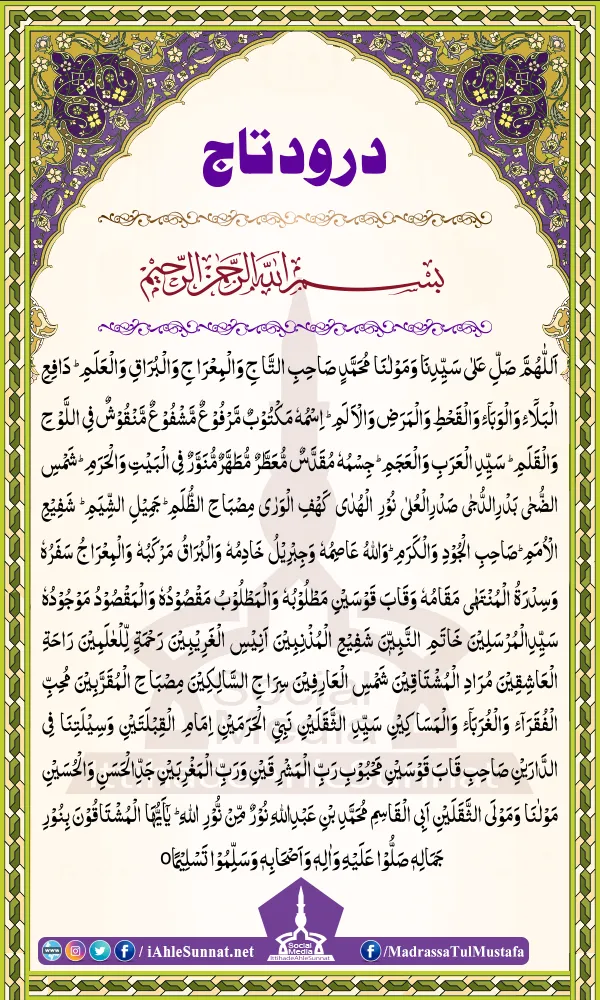 درود تاج
بسم الله الرحمن الرحيم
اَللّٰهُمَّ صَلِّ عَلٰى سَيِّدِنَا وَمَوْلٰنَا مُحَمَّدٍ صَاحِبِ التَّاجِ وَالْمِعْرَاجِ وَالْبُرَاقِ وَالْعَلَمِ ؕ دَافِعِ
الْبَلَآءِ وَالْوَبَآءِ وَالْقَحْطِ وَالْمَرَضِ وَالْاَلَمِ ؕ اِسْمُهٗ مَكْتُوْبٌ مَّرْفُوْعٌ مَّشْفُوْعٌ مَّنْقُوْشٌ فِى اللَّوْحِ
وَالْقَلَمِ ؕ سَيِّدِ الْعَرَبِ وَالْعَجَمِ ؕ جِسْمُهٗ مُقَدَّسٌ مُّعَطَّرٌ مُّطَهَّرٌ مُّنَوَّرٌ فِى الْبَيْتِ وَالْحَرَمِ ؕ شَمْسِ
الضُّحٰى بَدْرِ الدُّجٰى صَدْرِ الْعُلٰى نُوْرِ الْهُدٰى كَهْفِ الْوَرٰى مِصْبَاحِ الظُّلَمِ ؕ جَمِيْلِ الشِّيَمِ ؕ شَفِيْعِ
الْاُمَمِ ؕ صَاحِبِ الْجُوْدِ وَالْكَرَمِ ؕ وَاللهُ عَاصِمُهٗ وَجِبْرِيْلُ خَادِمُهٗ وَالْبُرَاقُ مَرْكَبُهٗ وَالْمِعْرَاجُ سَفَرُهٗ
وَسِدْرَةُ الْمُنْتَهٰى مَقَامُهٗ وَقَابَ قَوْسَيْنِ مَطْلُوْبُهٗ وَالْمَطْلُوْبُ مَقْصُوْدُهٗ وَالْمَقْصُوْدُ مَوْجُوْدُهٗ
سَيِّدِ الْمُرْسَلِيْنَ خَاتَمِ النَّبِيّٖنَ شَفِيْعِ الْمُذْنِبِيْنَ اَنِيْسِ الْغَرِيْبِيْنَ رَحْمَةٍ لِّلْعٰلَمِيْنَ رَاحَةِ
الْعَاشِقِيْنَ مُرَادِ الْمُشْتَاقِيْنَ شَمْسِ الْعَارِفِيْنَ سِرَاجِ السَّالِكِيْنَ مِصْبَاحِ الْمُقَرَّبِيْنَ مُحِبِّ
الْفُقَرَآءِ وَالْغُرَبَآءِ وَالْمَسَاكِيْنِ سَيِّدِ الثَّقَلَيْنِ نَبِيِّ الْحَرَمَيْنِ اِمَامِ الْقِبْلَتَيْنِ وَسِيْلَتِنَا فِى
الدَّارَيْنِ صَاحِبِ قَابَ قَوْسَيْنِ مَحْبُوْبِ رَبِّ الْمَشْرِقَيْنِ وَرَبِّ الْمَغْرِبَيْنِ جَدِّ الْحَسَنِ وَالْحُسَيْنِ
مَوْلٰنَا وَمَوْلَى الثَّقَلَيْنِ اَبِى الْقَاسِمِ مُحَمَّدِ بْنِ عَبْدِ اللهِ نُوْرٌ مِّنْ نُّوْرِ اللهِ ؕ يٰٓاَيُّهَا الْمُشْتَاقُوْنَ بِنُوْرِ
جَمَالِهٖ صَلُّوْا عَلَيْهِ وَاٰلِهٖ وَاَصْحَابِهٖ وَسَلِّمُوْا تَسْلِيْمًا○
Social
Media
IttihadeAhleSunnat
/ iAhleSunnat.net
Social
Media
IttihadeAhleSunnat
/MadrassaTulMustafa